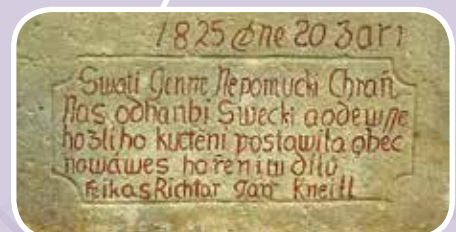 1825 dne 20 Zari
Swati Genne Nepomucki Chrań
Nas odhanbi Swecki aodewsse
hozliho kucteni postawila obec
nowáwes hořeniwdilu
feikasRichtar Jan Kneitl